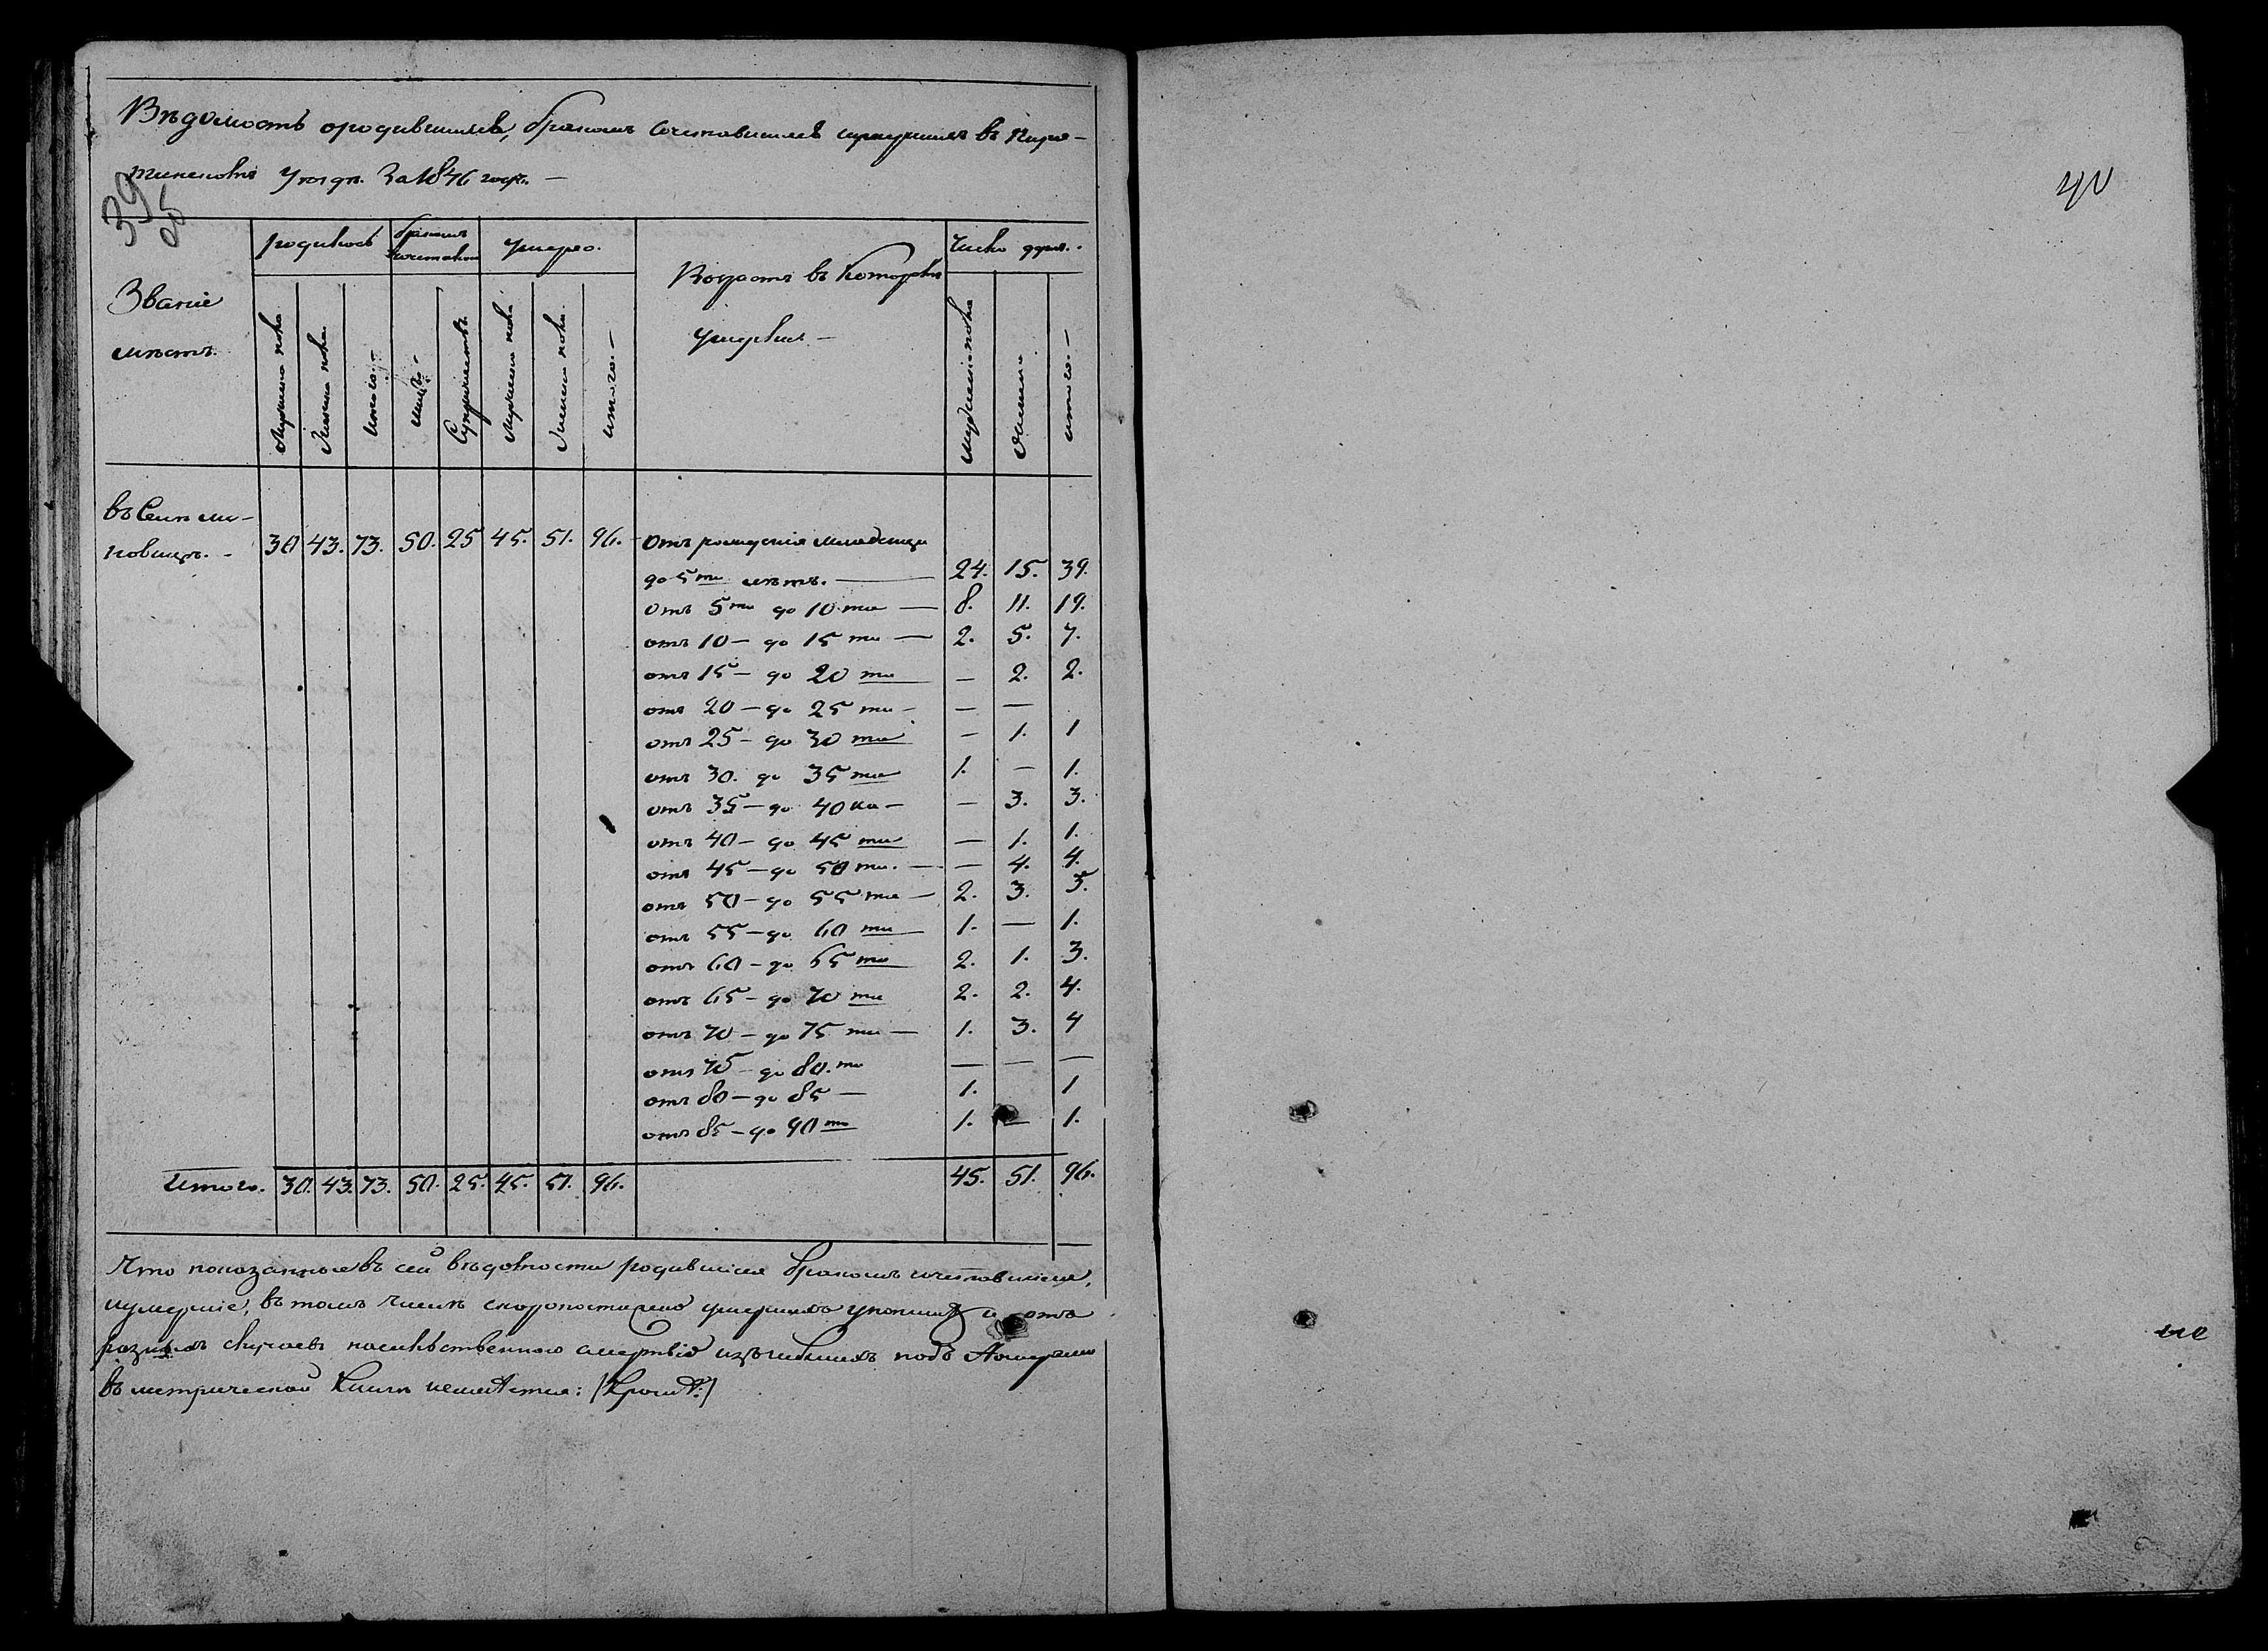 Вѣдомость ородившихся, бракомъ сочетавшихся иумершихъ въ Пиря-
тинскомъ Уѣздѣ. За 1846 годъ. —
39
об
Званіе
мѣстъ.
родилось
бракомъ
сочетавш
умерло.
Возрастъ въ которомъ
умерли —
Число душъ.
Мужеска пола
Женска пола
итого.
лицъ.
Супружествъ.
Мужеска пола
Женска пола.
итого. —
мужеска пола
женска
итого. —
въ Селѣ
новщинѣ. -
30 43. 73. 50. 25 45. 51. 96.
Отъ рожденія младенцы
до 5ти лѣтъ. — 24. 15. 39.
Отъ 5ти до 10ти — 8. 11. 19.
отъ 10 — до 15ти — 2. 5. 7.
отъ 15 — до 20ти — 2. 2.
отъ 20 — до 25ти — — —
отъ 25 — до 30ти — 1. 1
отъ 30. до 35ти 1. — 1.
отъ 35 — до 40ка — — 3. 3.
отъ 40 — до 45ти — 1. 1.
отъ 45 — до 50ти. — — 4. 4.
отъ 50 — до 55ти — 2. 3. 5.
отъ 55 — до 60ти 1. — 1.
отъ 60 — до 65ти 2. 1. 3.
отъ 65 — до 70ти 2. 2. 4.
отъ 70 — до 75ти — 1. 3. 4
отъ 75 — до 80.ти — — —
отъ 80 — до 85 — 1. 1
отъ 85 — до 90то 1. — 1.
Итого. 30. 43. 73. 50. 25. 45. 51. 96. 45. 51. 96.
Что показанные въ сей вѣдомости родившіеся бракомъ сочетавшіеся,
иумершіе, въ томъ числѣ скоропостижно умершихъ и отъ
разныхъ случаевъ насильственною смертію подъ Номерами
въ метрической Книгѣ
40